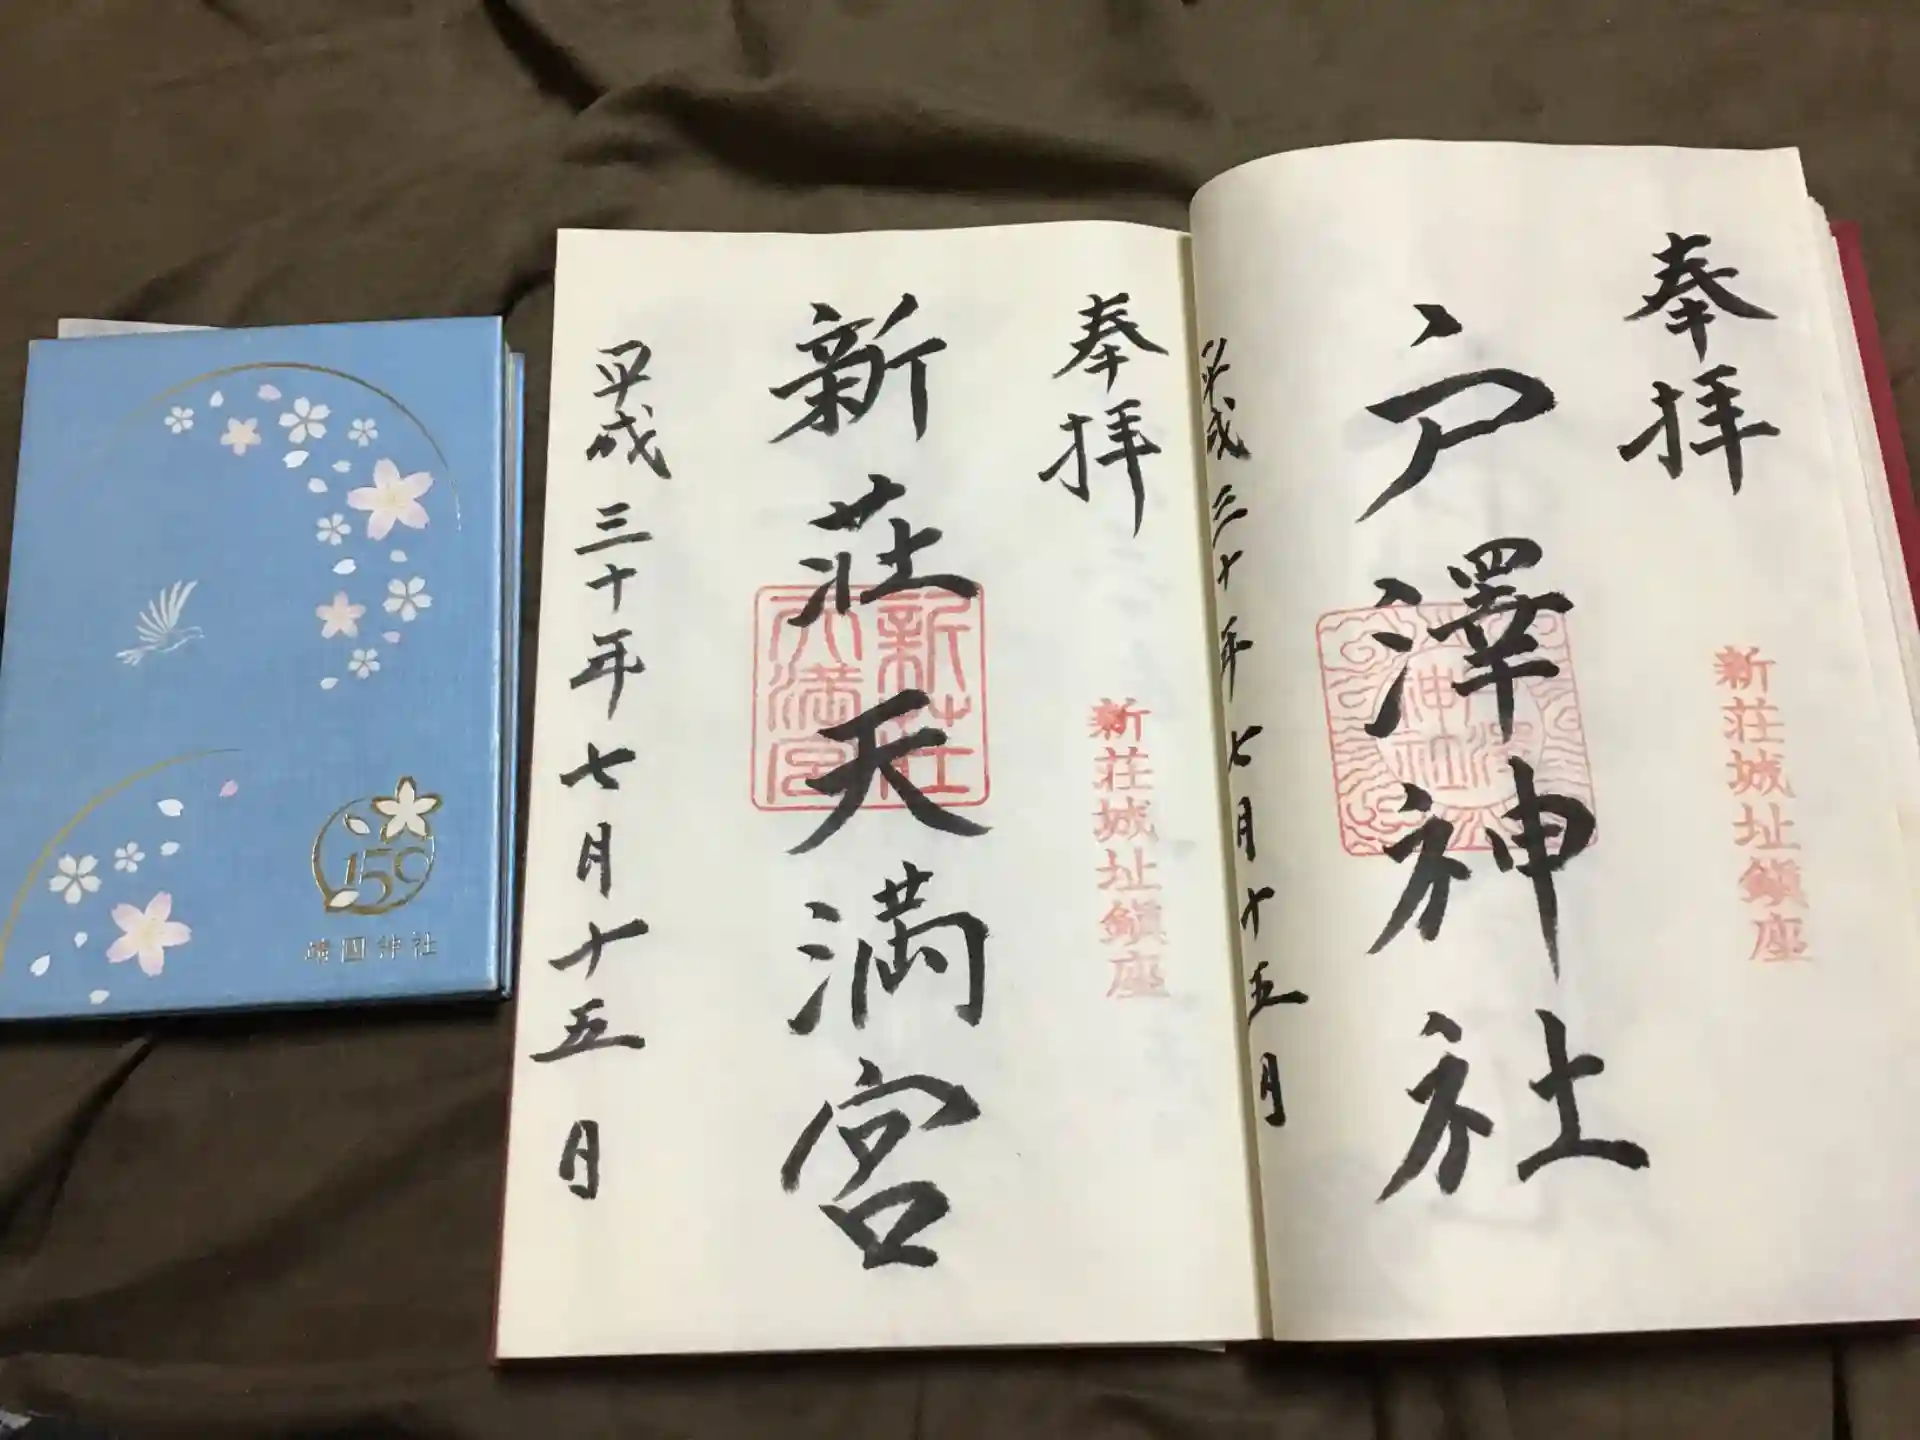 奉拝
新荘城址鎮座
戸澤神社
神社
戸澤
平成三十年七月十五日
奉拝
新荘城址鎮座
新荘天満宮
新荘
天満宮
平成三十年七月十五日
150
靖國神社